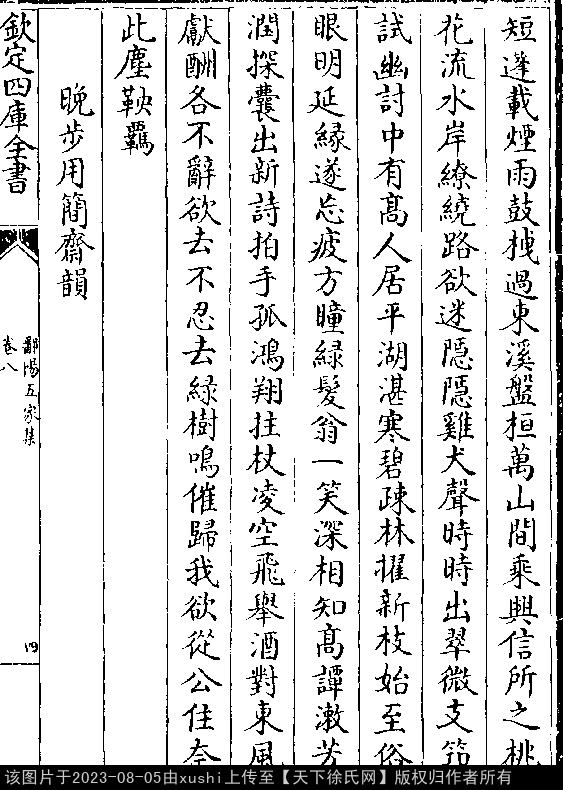 短蓬載煙雨鼓拽過東溪盤桓萬山間乘興信所之桃
花流水岸繚繞路欲迷隠隠雞犬聲時時出翠微支笻
試幽討中有髙人居平湖湛寒碧疎林擢新枝始至俗
眼明延緣遂忘疲方瞳緑髪翁一笑深相知髙譚潄芳
潤探囊出新詩拍手孤鴻翔拄杖凌空飛舉酒對東風
獻酬各不辭欲去不忍去緑樹鳴催歸我欲從公住奈
此塵鞅羈
晩步用簡齋韻
欽定四庫全書
鄱陽五家集
卷八
十四
该图片于2023-08-05由xushi上传至【天下徐氏网】版权归作者所有